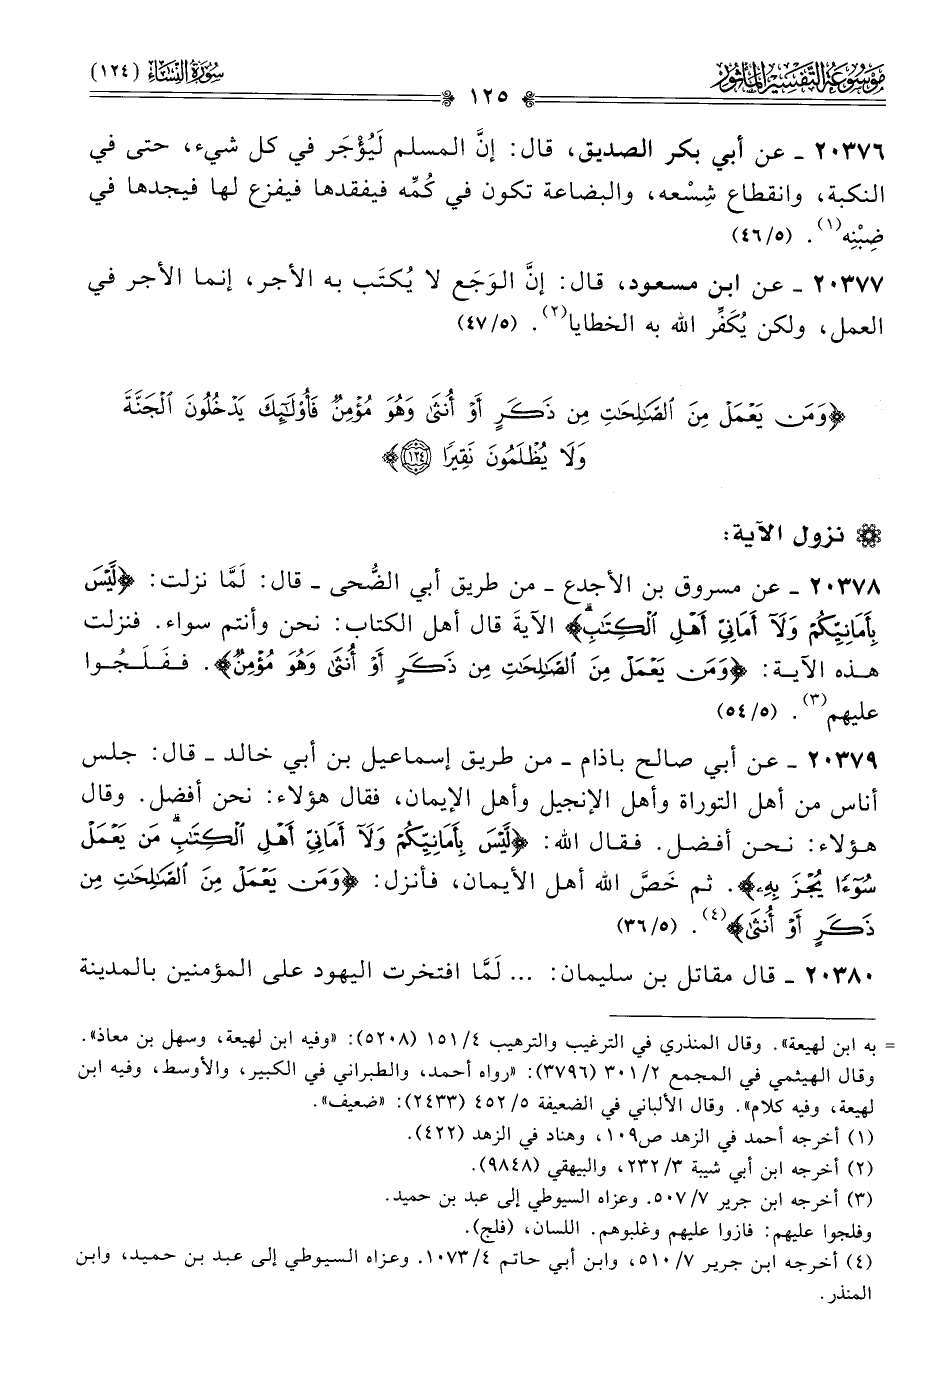 مَوْسُوعَة التَّفْسِير المَأثُور
سُورَةُ النِّسَاء (١٢٤)
١٢٥
٢٠٣٧٦ ـ عن أبي بكر الصديق، قال: إنَّ المسلم لَيُؤْجَر في كل شيء، حتى في
النكبة، وانقطاع شِسْعه، والبضاعة تكون في كُمِّه فيفقدها فيفزع لها فيجدها في
ضِبْنِه(١). (٤٦/٥)
٢٠٣٧٧ ـ عن ابن مسعود، قال: إنَّ الوَجَع لا يُكتَب به الأجر، إنما الأجر في
العمل، ولكن يُكَفِّر الله به الخطايا(٢). (٤٧/٥)
﴿وَمَن يَعْمَلْ مِنَ ٱلصَّٰلِحَٰتِ مِن ذَكَرٍ أَوْ أُنثَىٰ وَهُوَ مُؤْمِنٌ فَأُو۟لَٰٓئِكَ يَدْخُلُونَ ٱلْجَنَّةَ
وَلَا يُظْلَمُونَ نَقِيرًا ١٢٤﴾
نزول الآية:
٢٠٣٧٨ ـ عن مسروق بن الأجدع ـ من طريق أبي الضُّحى ـ قال: لَمَّا نزلت: ﴿لَّيْسَ
بِأَمَانِيِّكُمْ وَلَآ أَمَانِىِّ أَهْلِ ٱلْكِتَٰبِۗ﴾ الآيةَ قال أهل الكتاب: نحن وأنتم سواء. فنزلت
هذه الآية: ﴿وَمَن يَعْمَلْ مِنَ ٱلصَّٰلِحَٰتِ مِن ذَكَرٍ أَوْ أُنثَىٰ وَهُوَ مُؤْمِنٌ﴾. ففَلَجُوا
عليهم(٣). (٥٤/٥)
٢٠٣٧٩ ـ عن أبي صالح باذام ـ من طريق إسماعيل بن أبي خالد ـ قال: جلس
أناس من أهل التوراة وأهل الإنجيل وأهل الإيمان، فقال هؤلاء: نحن أفضل. وقال
هؤلاء: نحن أفضل. فقال الله: ﴿لَّيْسَ بِأَمَانِيِّكُمْ وَلَآ أَمَانِىِّ أَهْلِ ٱلْكِتَٰبِۗ مَن يَعْمَلْ
سُوٓءًا يُجْزَ بِهِۦ﴾. ثم خَصَّ الله أهل الأيمان، فأنزل: ﴿وَمَن يَعْمَلْ مِنَ ٱلصَّٰلِحَٰتِ مِن
ذَكَرٍ أَوْ أُنثَىٰ﴾(٤). (٣٦/٥)
٢٠٣٨٠ ـ قال مقاتل بن سليمان: ... لَمَّا افتخرت اليهود على المؤمنين بالمدينة
= به ابن لهيعة». وقال المنذري في الترغيب والترهيب ١٥١/٤ (٥٢٠٨): «وفيه ابن لهيعة، وسهل بن معاذ».
وقال الهيثمي في المجمع ٣٠١/٢ (٣٧٩٦): «رواه أحمد، والطبراني في الكبير، والأوسط، وفيه ابن
لهيعة، وفيه كلام». وقال الألباني في الضعيفة ٤٥٢/٥ (٢٤٣٣): «ضعيف».
(١) أخرجه أحمد في الزهد ص١٠٩، وهناد في الزهد (٤٢٢).
(٢) أخرجه ابن أبي شيبة ٢٣٢/٣، والبيهقي (٩٨٤٨).
(٣) أخرجه ابن جرير ٥٠٧/٧. وعزاه السيوطي إلى عبد بن حميد.
وفلجوا عليهم: فازوا عليهم وغلبوهم. اللسان، (فلج).
(٤) أخرجه ابن جرير ٥١٠/٧، وابن أبي حاتم ١٠٧٣/٤. وعزاه السيوطي إلى عبد بن حميد، وابن
المنذر.